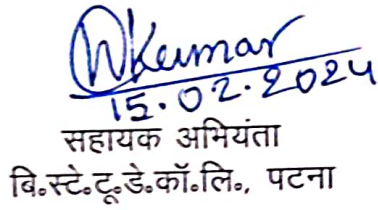 WKumar
15.02.2024
सहायक अभियंता
बि॰स्टे॰टू॰डे॰कॉ॰लि॰, पटना